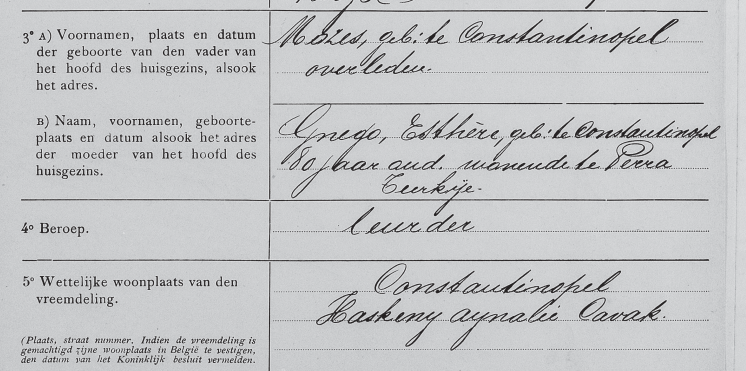 3° A) Voornamen, plaats en datum
der geboorte van den vader van
het hoofd des huisgezins, alsook
het adres.
Mozes, geb: te Constantinopel
overleden.
B) Naam, voornamen, geboorte-
plaats en datum alsook het adres
der moeder van het hoofd des
huisgezins.
Gnego, Esthère, geb: te Constantinopel
80 jaar oud. wonende te Perra
Turkije.
4° Beroep.
leurder
5° Wettelijke woonplaats van den
vreemdeling.
Constantinopel
Haskeny aynalie Cavak.
(Plaats, straat nummer. Indien de vreemdeling is
gemachtigd zijne woonplaats in België te vestigen,
den datum van het Koninklijk besluit vermelden.